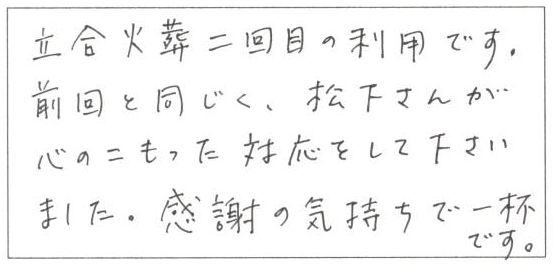 立合火葬二回目の利用です。
前回と同じく、松下さんが
心のこもった対応をして下さい
ました。感謝の気持ちで一杯
です。